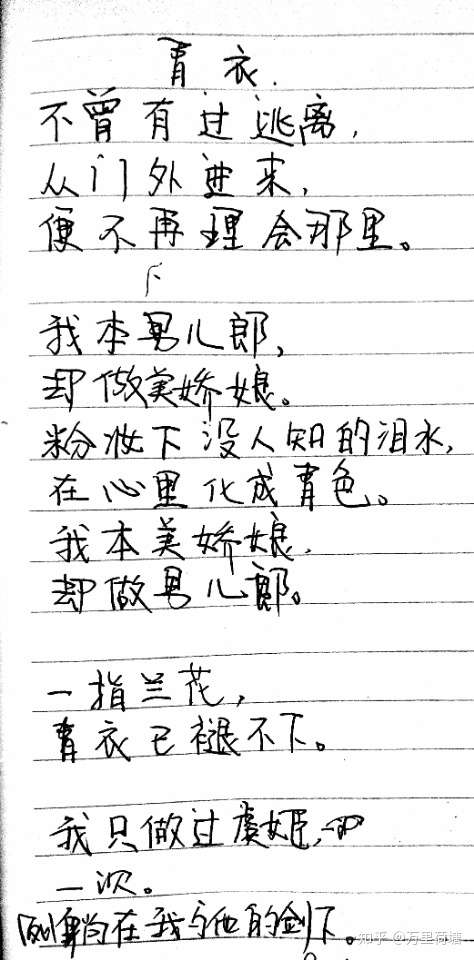 青衣.
不曾有过逃离,
从门外进来,
便不再理会那里。
我本男儿郎,
却做美娇娘。
粉妆下没人知的泪水,
在心里化成青色。
我本美娇娘,
却做男儿郎。
一指兰花,
青衣已褪不下。
我只做过虞姬,
一次。
在我与他的剑下。
知乎 @万里荷塘